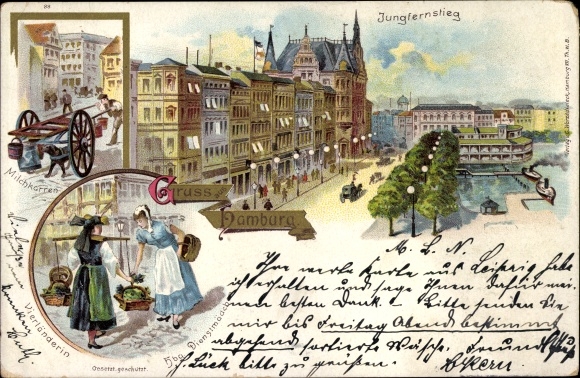 88
Jungfernstieg
Milchkarren
Gruss
Hamburg
Vierländerin
Hbg. Dienstmädchen
Gesetzl. geschützt.
M. L. N.
Ihre werte Karte aus Leipzig habe
ich erhalten und sage Ihnen dafür mei-
nen besten Dank. Bitte senden Sie
mir bis Freitag Abend bestimmt
abgehend sortierte Wäsche. Freund
Lück bitte zu grüßen.